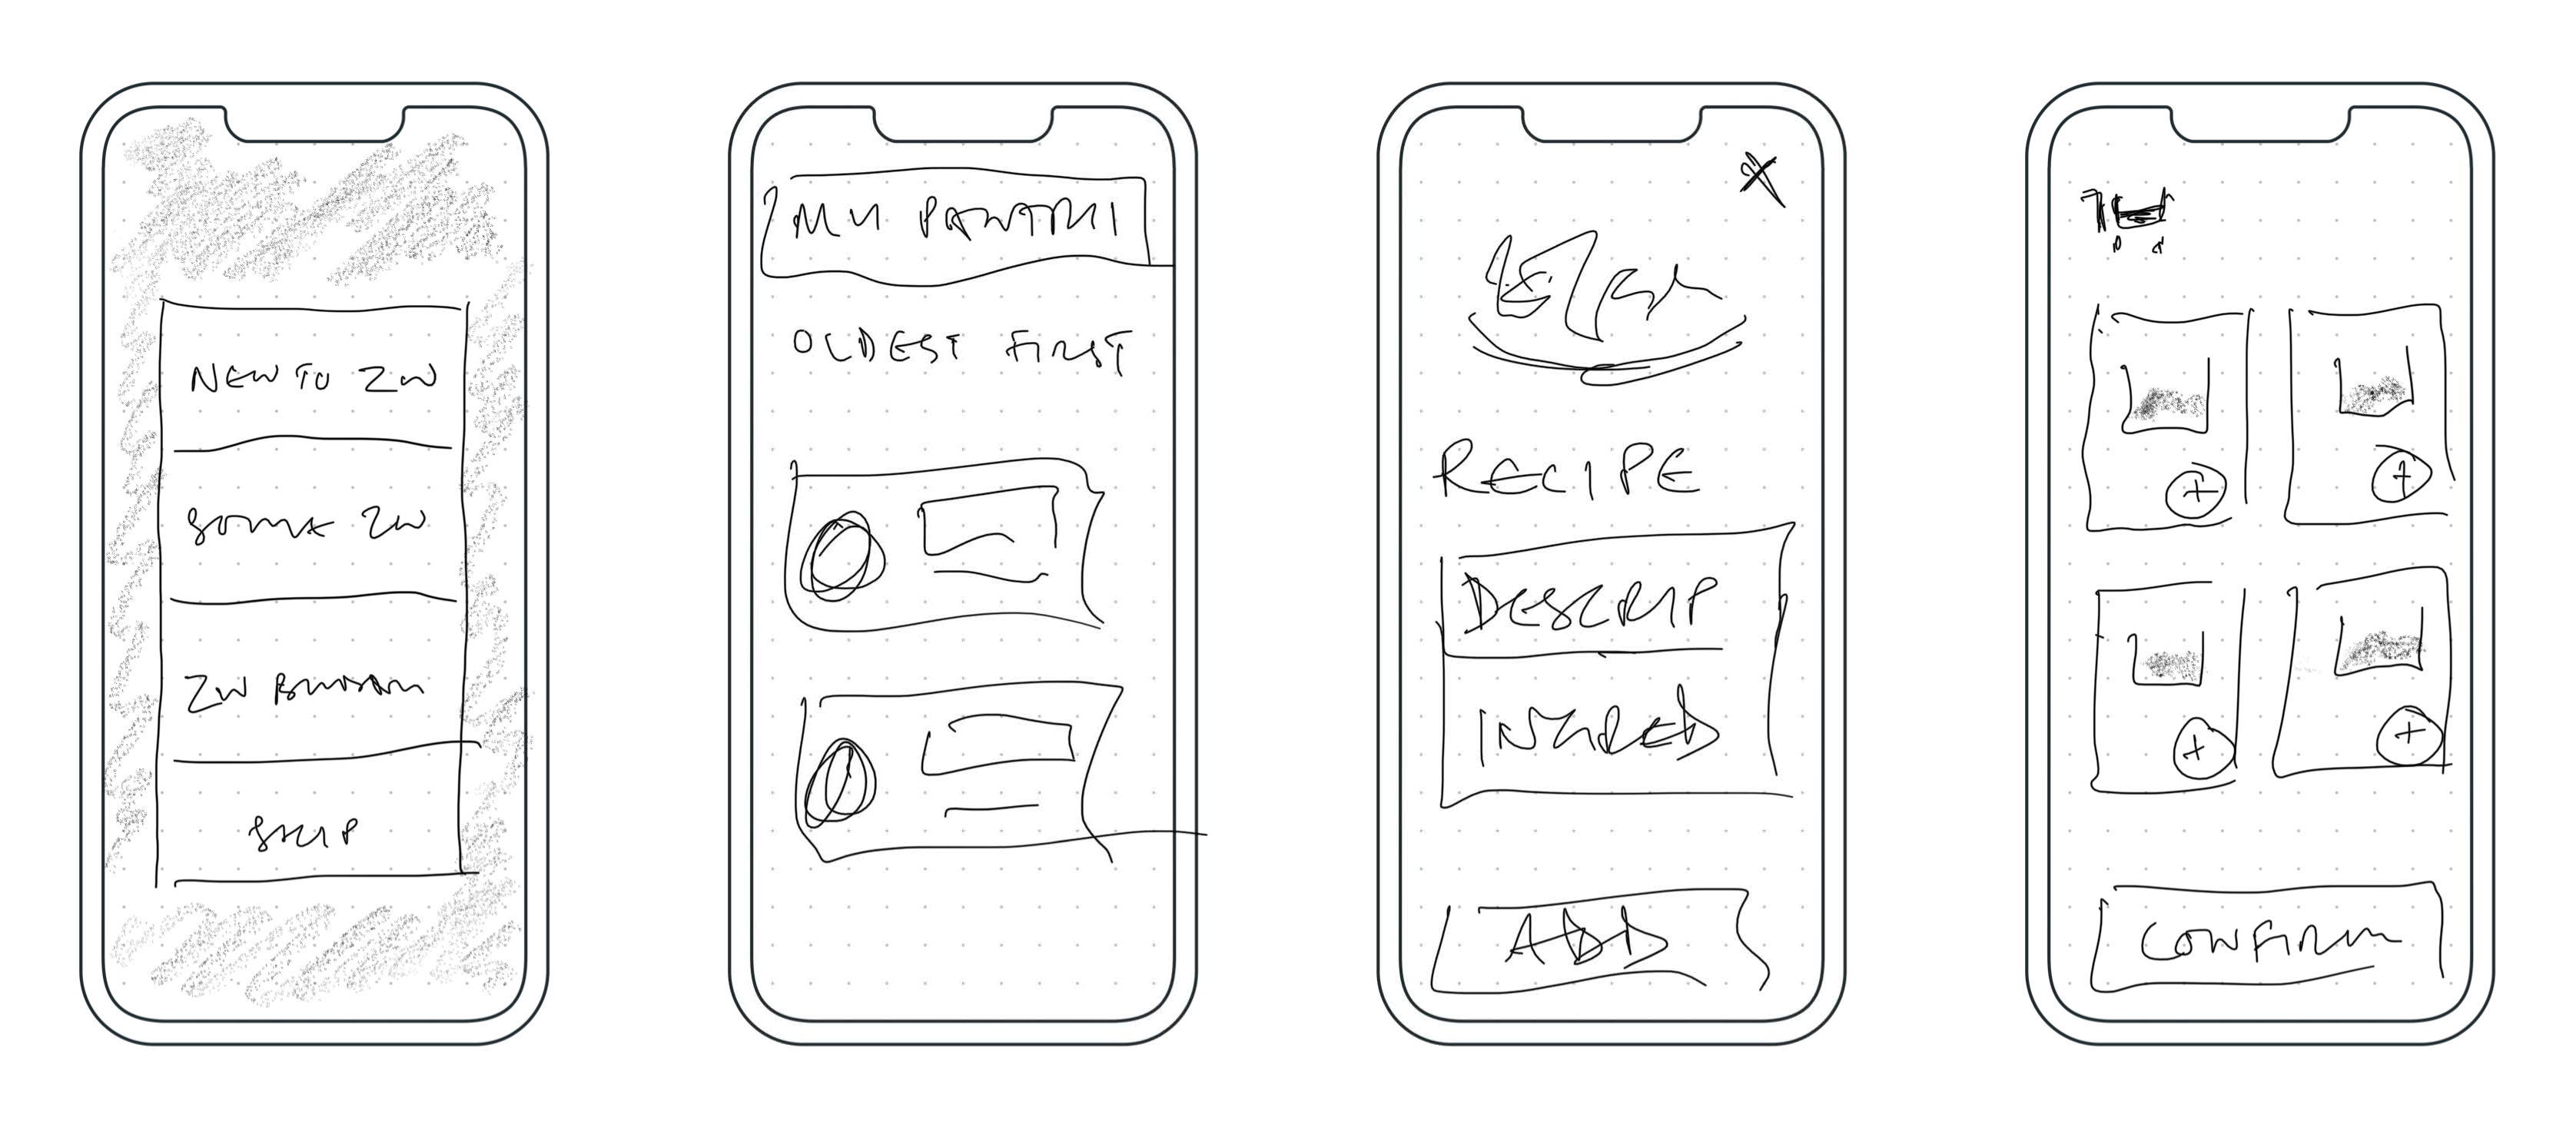 NEW TO ZW
SOME ZW
ZW
SKIP
MY PANTRY
OLDEST FIRST
RECIPE
DESCRIP
INGRED
ADD
CONFIRM